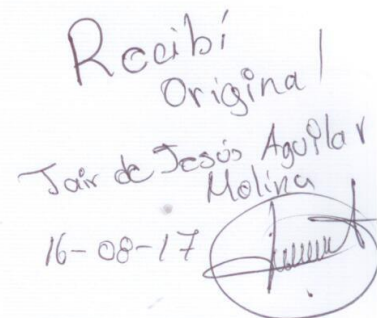 Recibí
Original
Jair de Jesús Aguilar
Molina
16-08-17